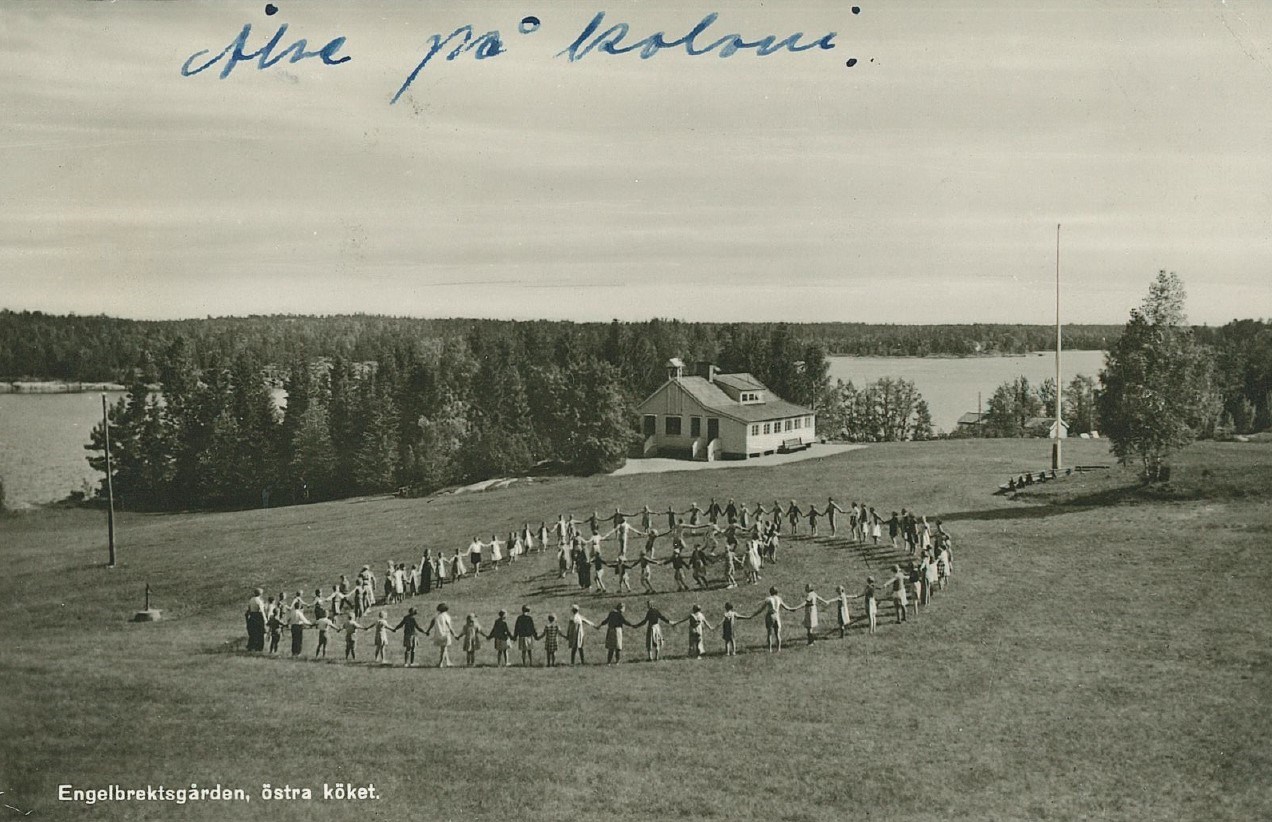 på koloni.
Engelbrektsgården, östra köket.